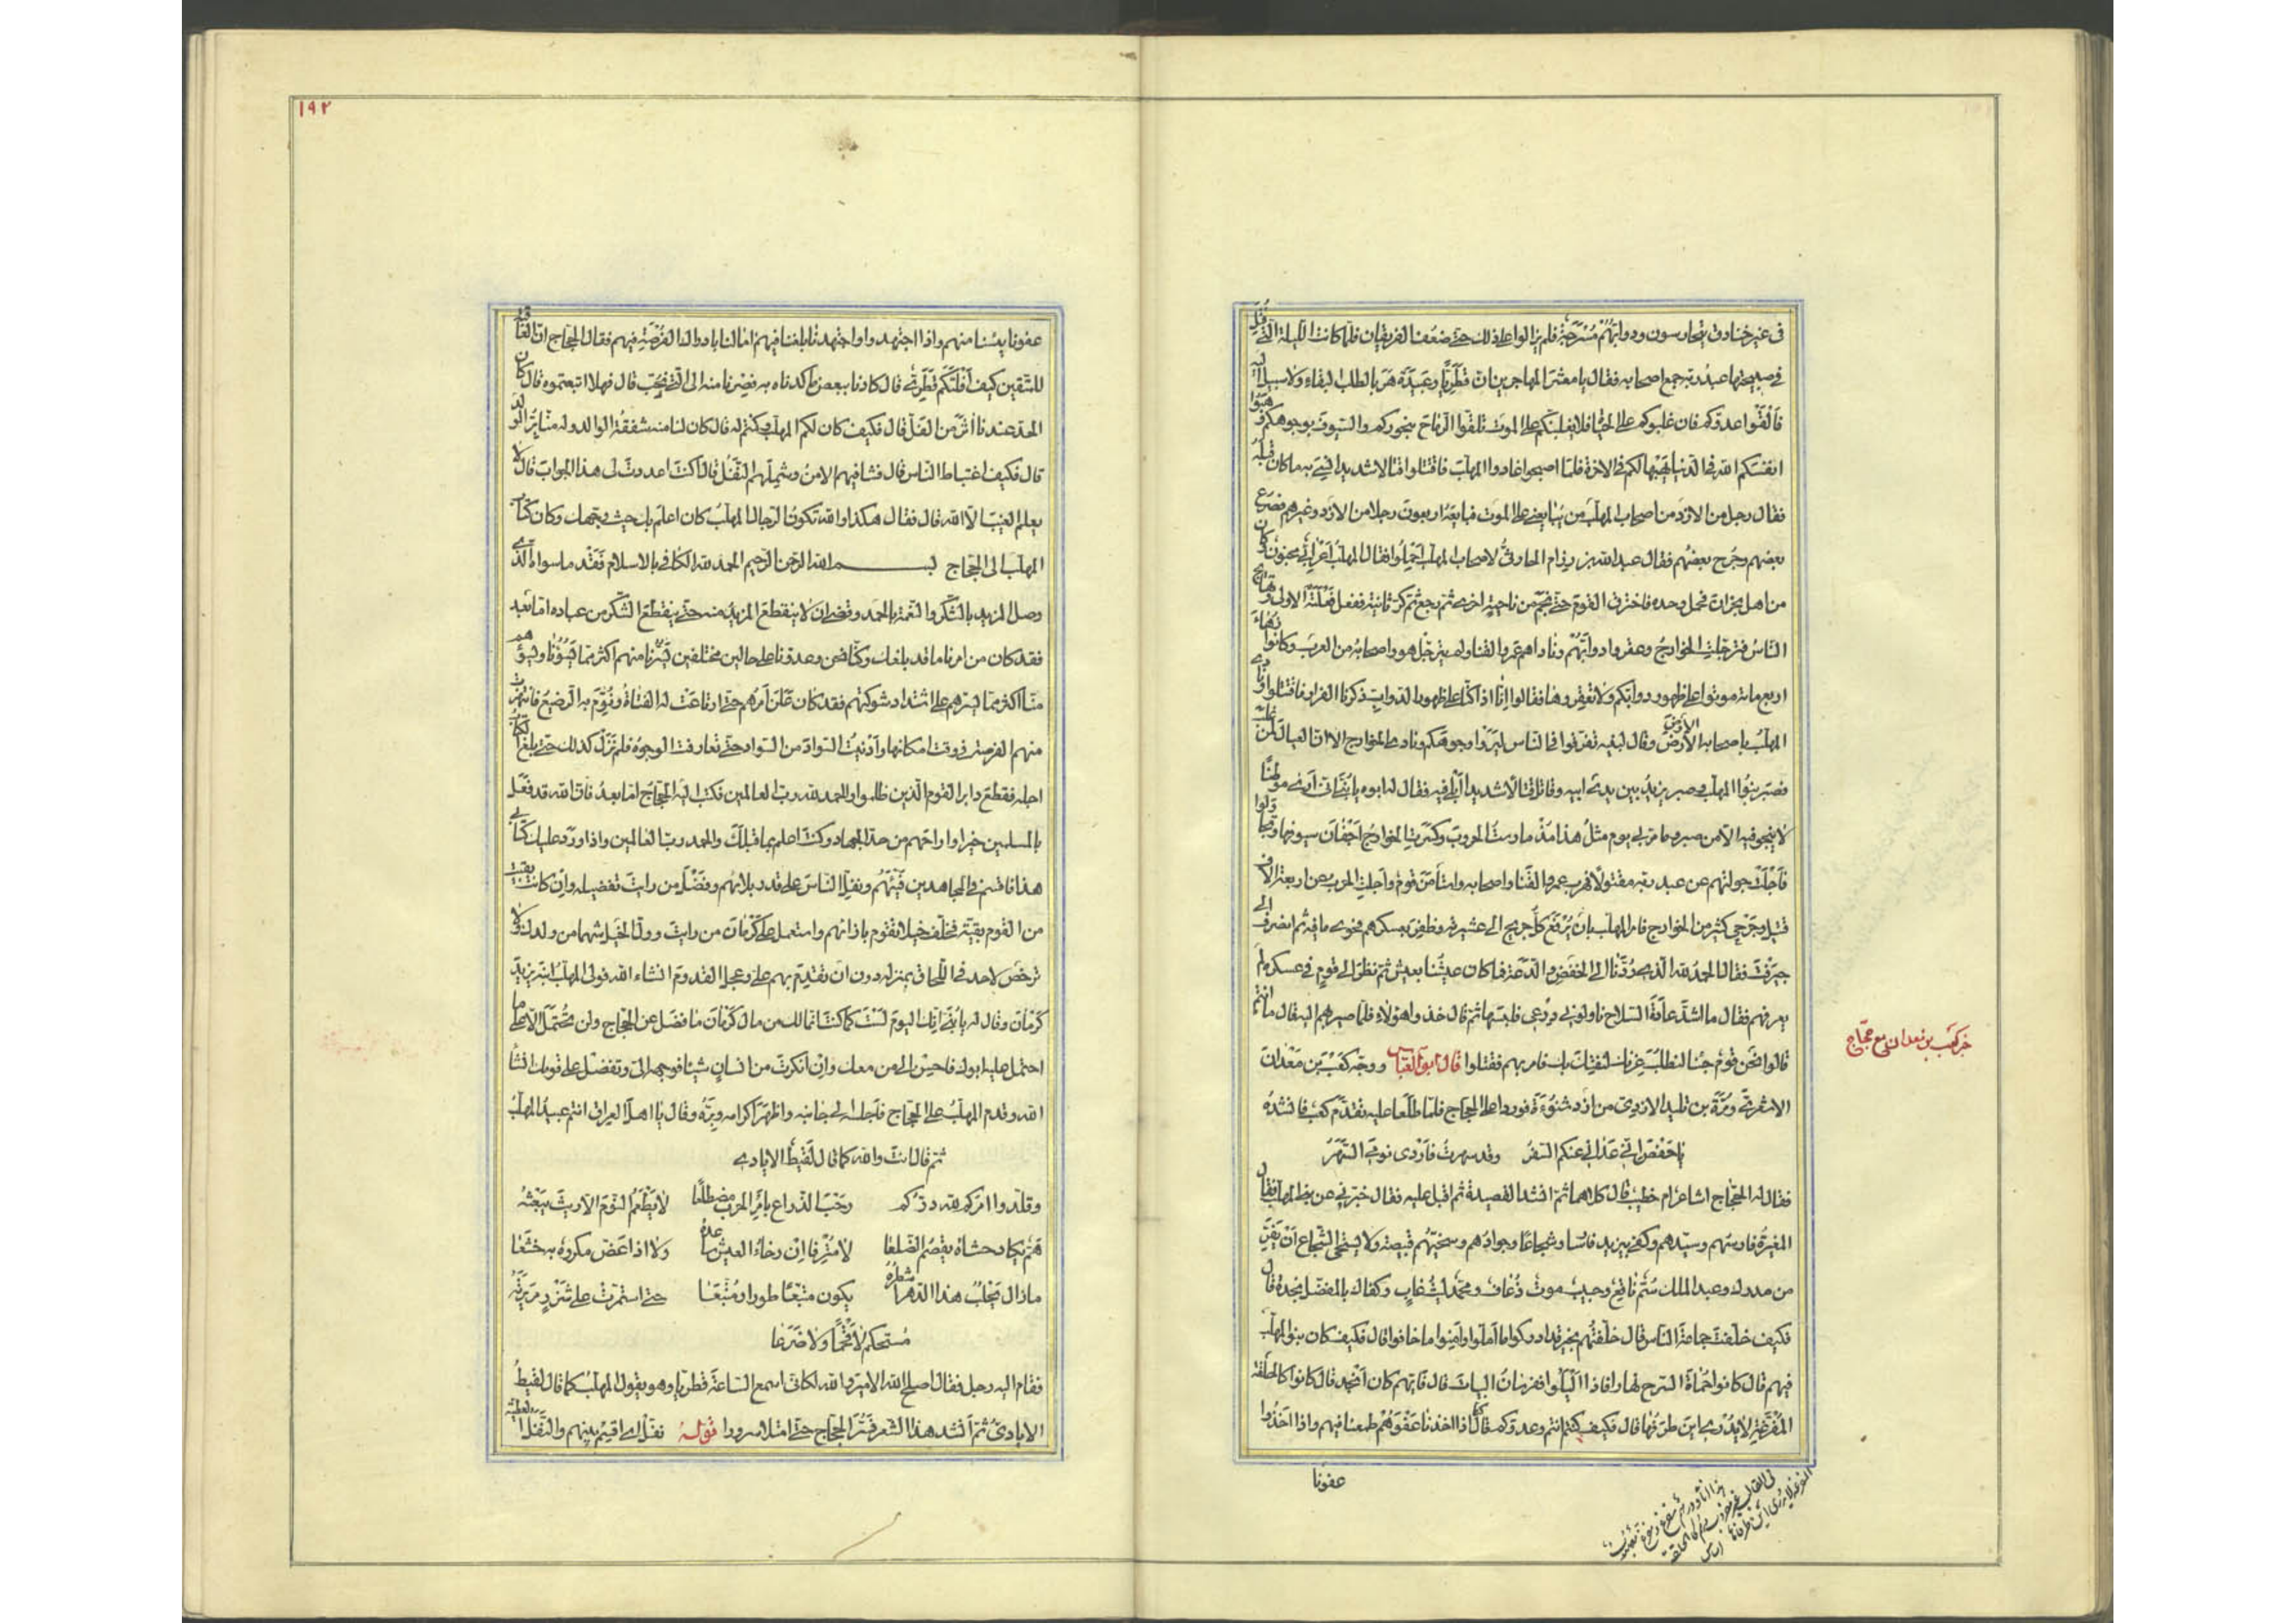 في غير خنادق يتحارسون ودوابهم مسرجة فلم يزالوا على ذلك حتى ضعف الفريقان فلما كانت الليلة التي قتل
في صبيحتها عبد ربه جمع اصحابه فقال يا معشر المهاجرين ان قطريا وعبيدة هربا لطلب البقاء ولا سبيل اليه
فالقوا عدوكم فان غلبوكم على الحياة فلا يغلبنكم على الموت فتلقوا الرماح بنحوركم والسيوف بوجوهكم وهبوا
انفسكم لله في الدنيا يهبها لكم في الاخرة فلما اصبحوا غادوا المهلب فاقتتلوا قتالا شديدا نسي به ما كان قبله
فقال رجل من الازد من اصحاب المهلب من يبايعني على الموت فبايعه اربعون رجلا من الازد وغيرهم فصرع
بعضهم وجرح بعضهم فقال عبد الله بن رزام الحارثي لاصحاب المهلب احملوا فقال المهلب اعرابي مجنون وكان
من اهل نجران فحمل وحده فاخترق القوم حتى نجم من ناحية اخرى ثم رجع ثم كر ثانية ففعل فعلته الاولى وتهايج
الناس فترجلت الخوارج وعقروا دوابهم وناداهم عمرو القنا ولم يترجل هو واصحابه من العرب وكانوا زهاء
اربع مائة موتوا على ظهور دوابكم ولا تعقروها فقالوا انا اذا كنا على ظهور الدواب ذكرنا الفرار فاقتتلوا ونادى
المهلب باصحابه الارض الارض وقال لبنيه تفرقوا في الناس ليروا وجوهكم ونادت الخوارج الا ان العيال لمن غلب
فصبر بنوا المهلب وصبر يزيد بين يدي ابيه وقاتل قتالا شديدا ابلى فيه فقال له ابوه يا بني اني ارى موطنا
لا ينجو فيه الا من صبر وما مر بي يوم مثل هذا مذ مارست الحروب وكسرت الخوارج اجفان سيوفها وتجاولوا
فاجلت جولتهم عن عبد ربه مقتولا فهرب عمرو القنا واصحابه واستأمن قوم واجلت الحرب عن اربعة الاف
قتيل وجرحى كثير من الخوارج فامر المهلب بان يدفع كل جريح الى عشيرته وظفر بعسكرهم فحوى ما فيه ثم انصرف الى
جيرفت فقال الحمد لله الذي ردنا الى الخفض والدعة فما كان عيشنا بعيش ثم نظر الى قوم في عسكره لم
يعرفهم فقال ما اشد عادة السلاح ناولوني درعي فلبسها ثم قال خذوا هؤلاء فلما صير بهم اليه قال ما انتم
قالوا نحن قوم جئنا لنطلب غرتك لنفتك بك فامر بهم فقتلوا قال ابو العباس ووجه كعب بن معدان
الاشقري ومرة بن تليد الازدي من ازد شنوءة فوردا على الحجاج فلما طلعا عليه تقدم كعب فانشده
يا حفص اني عداني عنكم السفر وقد سهرت فاردى نومي السهر
فقال له الحجاج اشاعر ام خطيب قال كلاهما ثم انشد القصيدة ثم اقبل عليه فقال خبرني عن بني المهلب فقال
المغيرة فارسهم وسيدهم وكفى بيزيد فارسا وشجاعا وجوادهم وسخيهم قبيصة ولا يستحي الشجاع ان يفر
من مدرك وعبد الملك سم ناقع وحبيب موت ذعاف ومحمد ليث غاب وكفاك بالمفضل نجدة قال
فكيف خلفت جماعة الناس قال خلفتهم بخير قد ادركوا ما املوا وامنوا ما خافوا قال فكيف كان بنو المهلب
فيهم قال كانوا حماة السرح نهارا فاذا اليلوا ففرسان البيات قال فايهم كان انجد قال كانوا كالحلقة
المفرغة لا يدرى اين طرفها قال فكيف كنتم انتم وعدوكم قال كنا اذا اخذنا عفوهم طمعنا فيهم واذا اخذوا
عفونا
خبر كعب بن معدان مع حجاج
١٩٢
عفونا يئسنا منهم واذا اجتهدوا واجتهدنا بلغنا فيهم امالنا بادراك الفرصة فيهم فقال الحجاج ان العاقبة
للمتقين كيف افلتكم قطري قال كادنا ببعض ما كدناه به فصرنا منه الى التي نحب قال فهلا اتبعتموه قال كان
الحد عندنا اثر من الفل قال فكيف كان لكم المهلب وكنتم له قال كان لنا منه شفقة الوالد وله منا بر الولد
قال فكيف اغتباط الناس قال فشا فيهم الامن وشملهم النفل قال اكنت اعددت لي هذا الجواب قال لا
يعلم الغيب الا الله قال فقال هكذا والله تكون الرجال المهلب كان اعلم بك حيث وجهك وكان كتاب
المهلب الى الحجاج بسم الله الرحمن الرحيم الحمد لله الكافي بالاسلام فقد ما سواه الذي
وصل المزيد بالشكر والنعمة بالحمد وقضى ان لا ينقطع المزيد منه حتى ينقطع الشكر من عباده اما بعد
فقد كان من امرنا ما قد بلغك وكنا نحن وعدونا على حالين مختلفين يسرنا منهم اكثر مما يسوؤنا ويسوؤهم
منا اكثر مما يسرهم على اشتداد شوكتهم فقد كان علن امرهم حتى ارتاعت له الفتاة ونوم به الرضيع فانتهزت
منهم الفرصة في وقت امكانها وادنيت السواد من السواد حتى تعارفت الوجوه فلم نزل كذلك حتى بلغ الكتاب
اجله فقطع دابر القوم الذين ظلموا والحمد لله رب العالمين فكتب اليه الحجاج اما بعد فان الله قد فعل
بالمسلمين خيرا واراحهم من حد الجهاد وكنت اعلم بما قبلك والحمد لله رب العالمين واذا ورد عليك كتابي
هذا فاقسم في المجاهدين فيئهم ونفل الناس على قدر بلائهم وفضل من رايت تفضيله وان كانت بقيت
من القوم بقية فخلف خيلا تقوم بازائهم واستعمل على كرمان من رايت وول الخيل شهما من ولدك ولا
ترخص لاحد في اللحاق بمنزله دون ان تقدم بهم علي وعجل القدوم انشاء الله فولى المهلب ابنه يزيد
كرمان وقال له يا بني انك اليوم لست كما كنت انما لك من مال كرمان ما فضل عن الحجاج ولن تحتمل الا على ما
احتمل عليه ابوك فاحسن الى من معك وان انكرت من انسان شيئا فوجهه الي وتفضل على قومك انشاء
الله وقدم المهلب على الحجاج فاجلسه الى جانبه واظهر اكرامه وبره وقال يا اهل العراق انتم عبيد المهلب
ثم قال انت والله كما قال لقيط الايادي
وقلدوا امركم لله دركم رحب الذراع بامر الحرب مضطلعا لا يطعم النوم الا ريث يبعثه
هم يكاد حشاه يقصم الضلعا لا مترفا ان رخاء العيش ساعده ولا اذا عض مكروه به خشعا
ما زال يحلب هذا الدهر اشطره يكون متبعا طورا ومتبعا حتى استمرت على شزر مريرته
مستحكم لا قحما ولا ضرعا
فقام اليه رجل فقال اصلح الله الامير والله لكاني اسمع الساعة قطريا وهو يقول المهلب كما قال لقيط
الايادي ثم انشد هذا الشعر فسر الحجاج حتى امتلا سرورا قوله نفل اي اقسم بينهم والنفل العطية